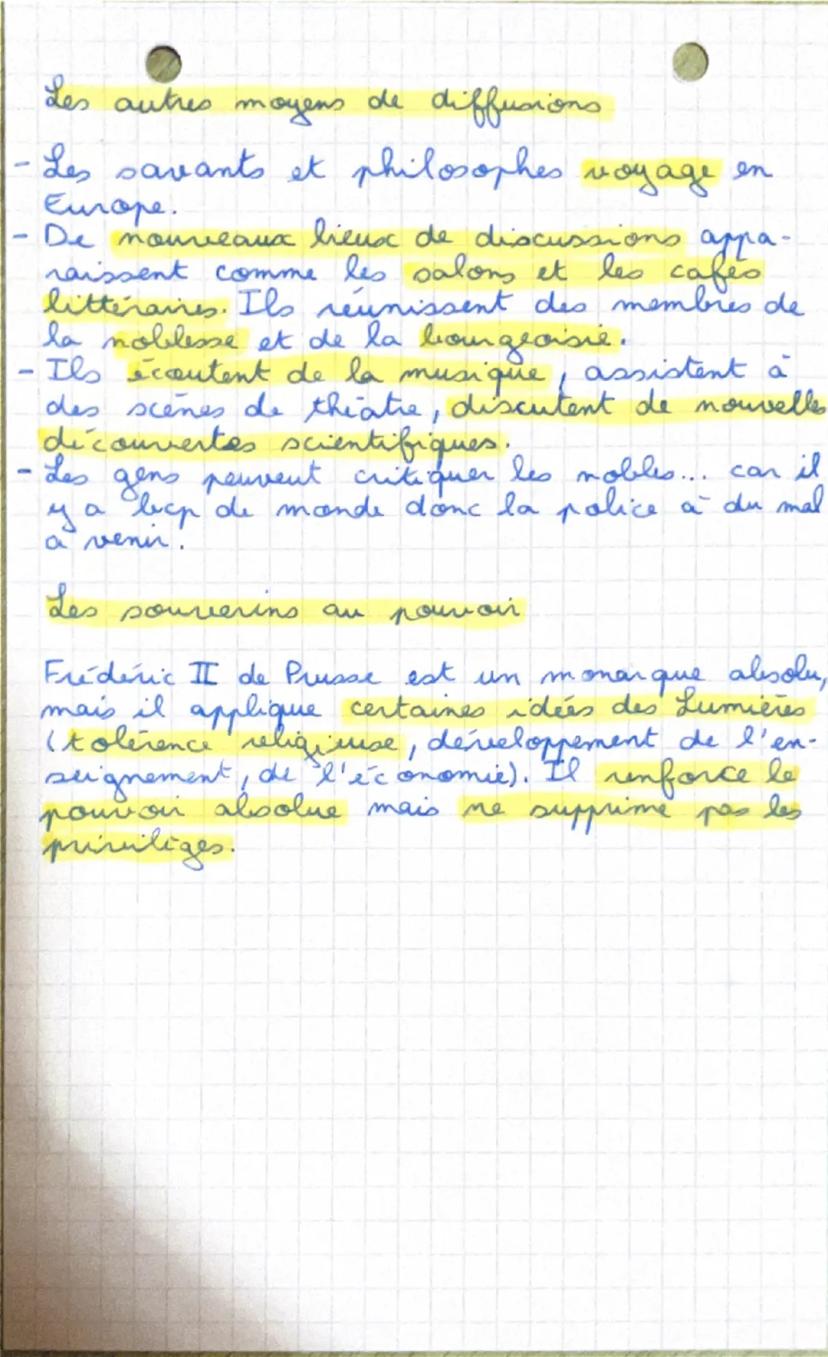 Les autres moyens de diffusions
- Les savants et philosophes voyage en
Europe.
- De nouveaux lieux de discussions appa-
raissent comme les salons et les cafés
littéraires. Ils réunissent des membres de
la noblesse et de la bourgeoisie.
- Ils écoutent de la musique, assistent à
des scènes de théatre, discutent de nouvelles
découvertes scientifiques.
- Les gens peuvent critiquer les nobles... car il
y a bcp de monde donc la police à du mal
à venir.
Les souverins au pouvoir
Frédéric II de Prusse est un monarque absolu,
mais il applique certaines idées des Lumières
(tolérence religieuse, dérveloppement de l'en-
seignement, de l'économie). Il renforce le
pouvoir absolue mais ne supprime pas les
privilèges.